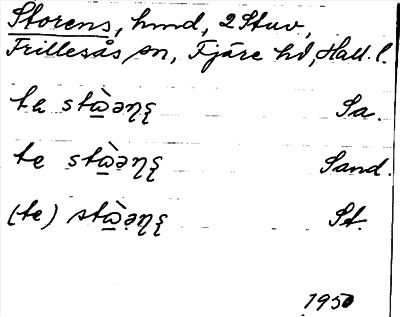 Storens, hmd, 2 Stuv,
Frillesås sn, Fjäre hd, Hall. l.
ta stɷ̀əɳʂ Sa.
te stɷ̀əɳʂ Sand.
(te) stɷ̀əɳʂ St.
1950